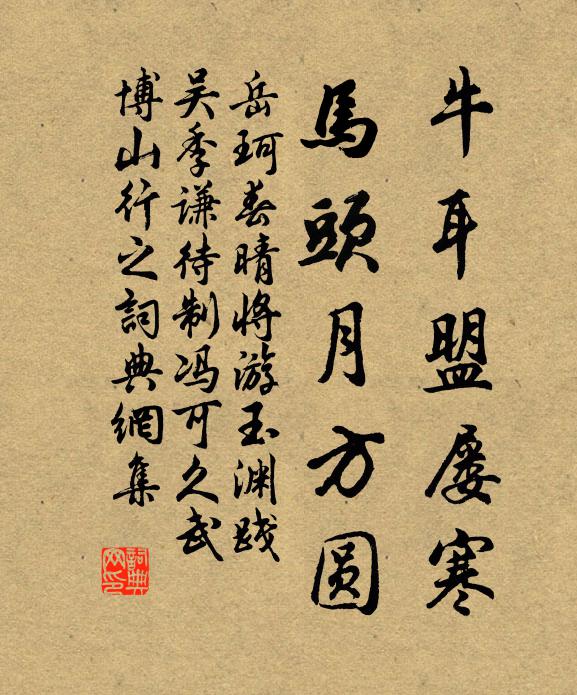 牛耳盟屡寒
馬頭月方圆
岳珂春晴将游玉渊践
吴季谦待制冯可久武
博山行之詞典網集
詞典网印